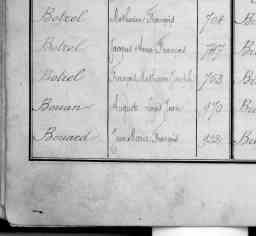 Botrel Mathurin François 708
Botrel Jacques Anne François 747
Botrel François Mathurin 763
Bouan Auguste Louis Jean 970
Bouard Jean Marie François 928